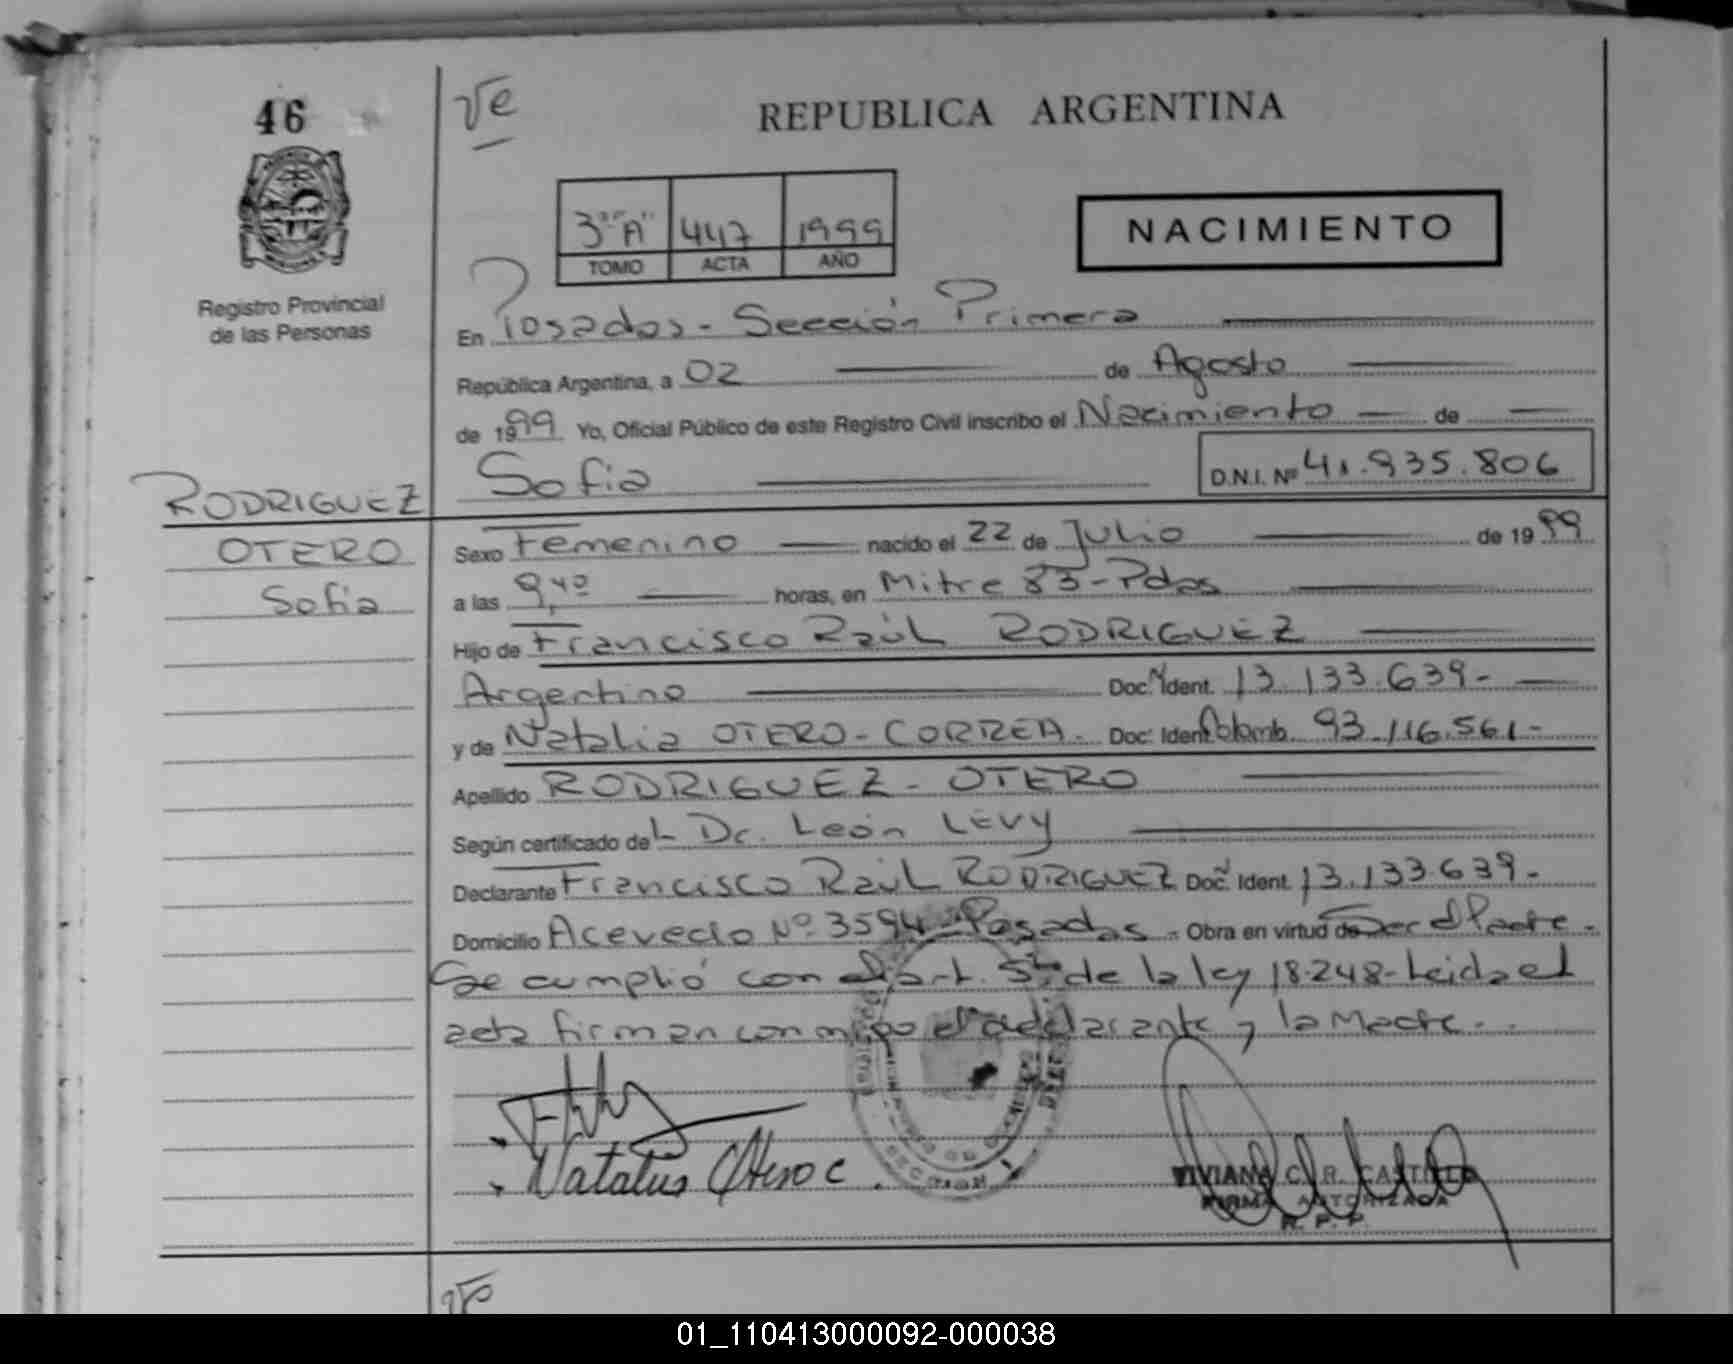 46
REPUBLICA ARGENTINA
3º "A" 447 1999
TOMO ACTA AÑO
NACIMIENTO
Registro Provincial
de las Personas
En Posadas - Sección Primera
República Argentina, a 02 de Agosto
de 1999 Yo, Oficial Público de este Registro Civil inscribo el Nacimiento de
Sofia D.N.I. Nº 41.935.806
RODRIGUEZ
OTERO
Sofia
Sexo Femenino nacido el 22 de Julio de 1999
a las 9,40 horas, en Mitre 83 - Pdas
Hijo de Francisco Raúl RODRIGUEZ
Argentino Doc. N Ident. 13.133.639.-
y de Natalia OTERO - CORREA. Doc. Ident. Colomb. 93.116.561.-
Apellido RODRIGUEZ - OTERO
Según certificado del Dr. León Levy
Declarante Francisco Raúl RODRIGUEZ Doc. N Ident. 13.133.639.-
Domicilio Acevedo Nº 3594 - Posadas. Obra en virtud de Ser el Padre.
Se cumplió con el art. 5to de la ley 18.248 - Leida el
acta firman conmigo el declarante y la Madre..
Natalia Otero C.
VIVIANA C. R. CASTILLO
FIRMA AUTORIZADA
R. P. P.
01_110413000092-000038